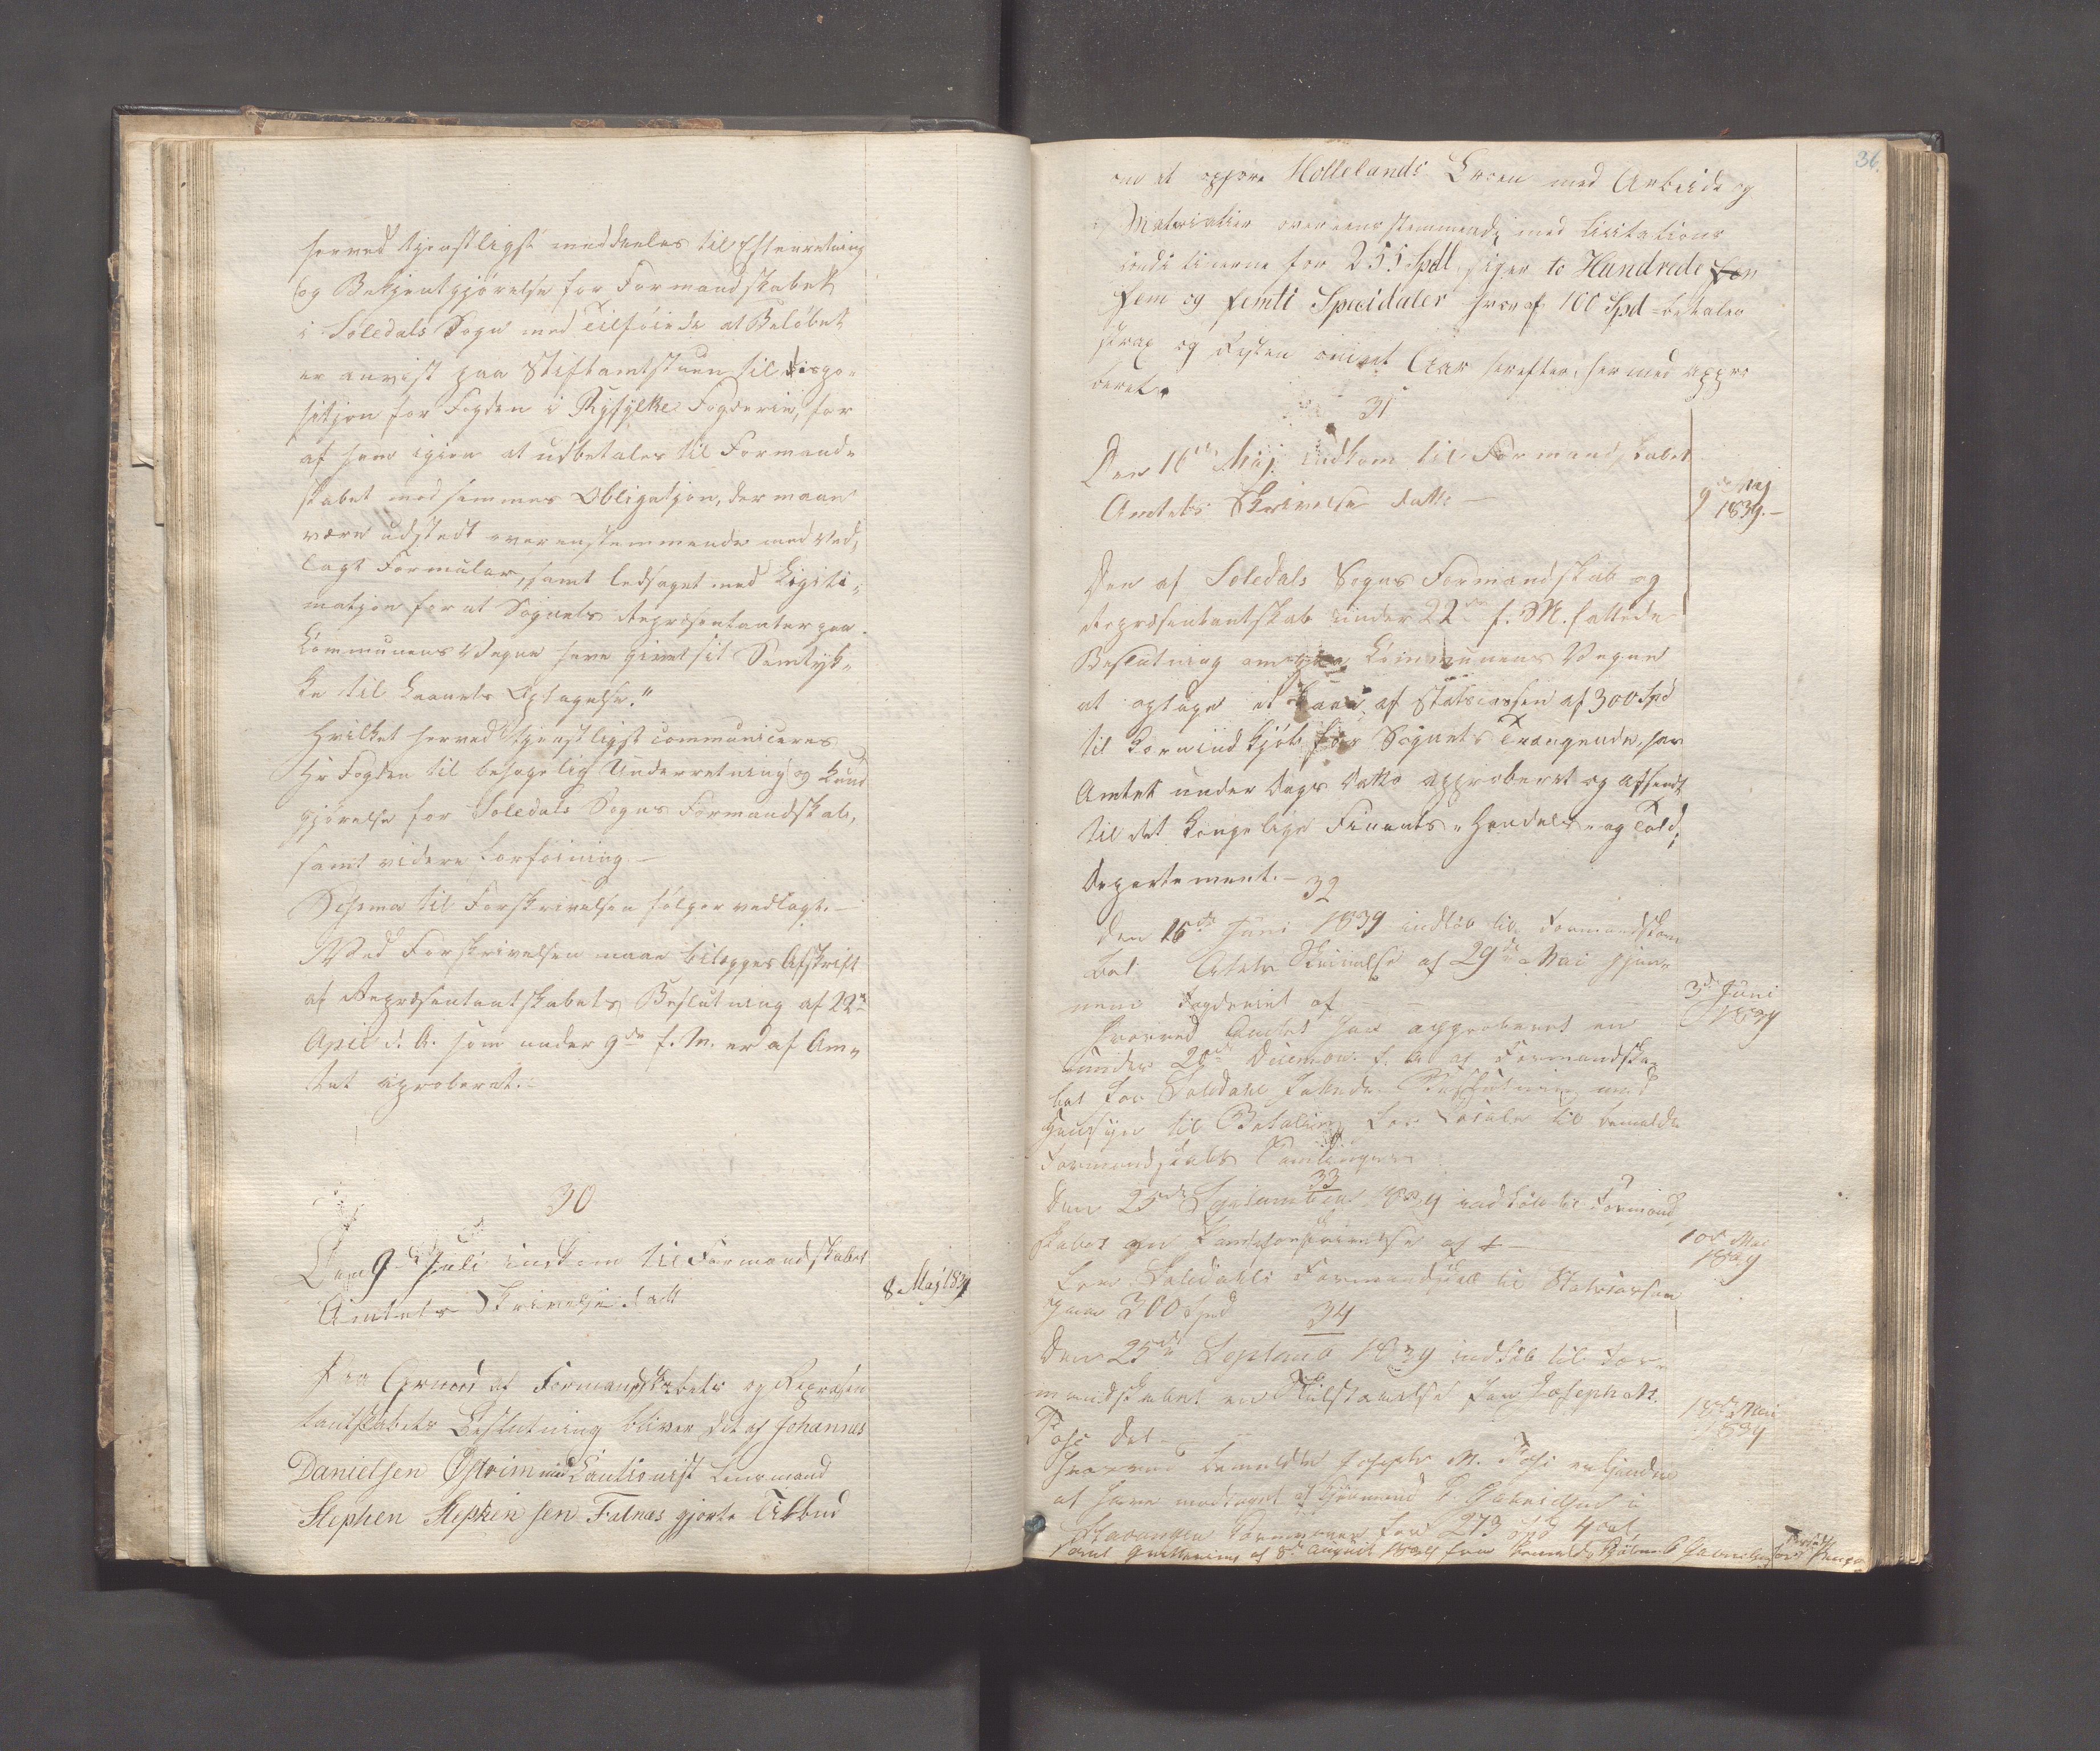 herved tjenstligst meddeeles til Efterretning
og Bekjentgjørelse for Formandskabet
i Soledals Sogn med Tilføiende at Beløbet
er anvist paa Stiftamtstuen til dispo-
sitjon for Fogden i Ryfylke Fogderie, for
af ham igien at udbetales til Formand-
skabet mod sammes Obligatjon, der maae
være udstedt overenstemmende med ved-
lagt Formular, samt ledsaget med Legiti-
matjon for at Sognets Repræsentanter paa
Communens Vegne have givet sit Samtyk-
ke til Laanets Optagelse."
Hvilket herved tjenstligst communiceres
Hr Fogden til behagelig Underretning og Kund
gjørelse for Soledals Sogns Formandskab,
samt videre Forføining.—
Schema til Forskrivelsen følger vedlagt.—
Ved Forskrivelsen maae bilægges Afskrift
af Repræsentantskabets Beslutning af 22de
April d. A. som under 9de f. M. er af Am-
tet aproberet.—
30
Den 9de Juli indkom til Formandskabet
Amtets Skrivelse datt
8 Maj 1839
Paa Grund af Formandskabets og Repræsen
tantskabets Beslutning bliver det af Johannes
Danielsen Østrim med Cautionist Lensmand
Stephen Stephensen Falnæs gjorte Tilbud
36.
om at opføre Mollelands Broen med Arbeide og
Materialier overeensstemmende med Licitations
conditionerne for 255 Spdl, siger to Hundrede fem
fem og femti Speciedaler hvoraf 100 Spd betales
strax og Resten om et Aar herefter, hermed appro
beret.
31
Den 16de Maj indkom til Formandskabet
Amtets Skrivelse datto —
9de Maj
1839.—
Den af Soledals Sogns Formandskab og
Repræsentantskab under 22de f. M. fattede
Beslutning om paa Communens Vegne
at optage et Laan af Statscassen af 300 Spd
til Kornindkjøb for Sognets Trængende, har
Amtet under Dags Dato approberet og afsendt
til det Kongelige Finants-, Handels- og Told-
Departement.—
32
Den 16de Juni 1839 indløb til Formandska
bet Amtets Skrivelse af 29de Mai gjen-
nem Fogderiet af —
3de Juni
1839
hvorved Amtet har approberet en
under 28de Decembr. f. A. af Formandska-
bet for Soledahl fattede Beslutning med
Hensyn til Betaling for Locale til bemeldte
Formandskabs Samlinger
33
Den 25de September 1839 indkom til Formand
skabet en Panteforskrivelse af —
10de Mai
1839
fra Soledahls Formandskab til Statscassen
paa 300 Spd
34
Den 25de Septemb 1839 indløb til For-
mandskabet en Tilstaaelse fra Joseph M.
Tosi dat —
18de Mai
1839
hvorved bemeldte Joseph M. Tosi erkjender
at have modtaget af Kjøbmand P. Gabrielsen i
Stavanger Kornvarer for 273 Spd 4 ort
samt Qvittering af 8de August 1839 fra bemeldte Kjøbmd Gabrielsen for